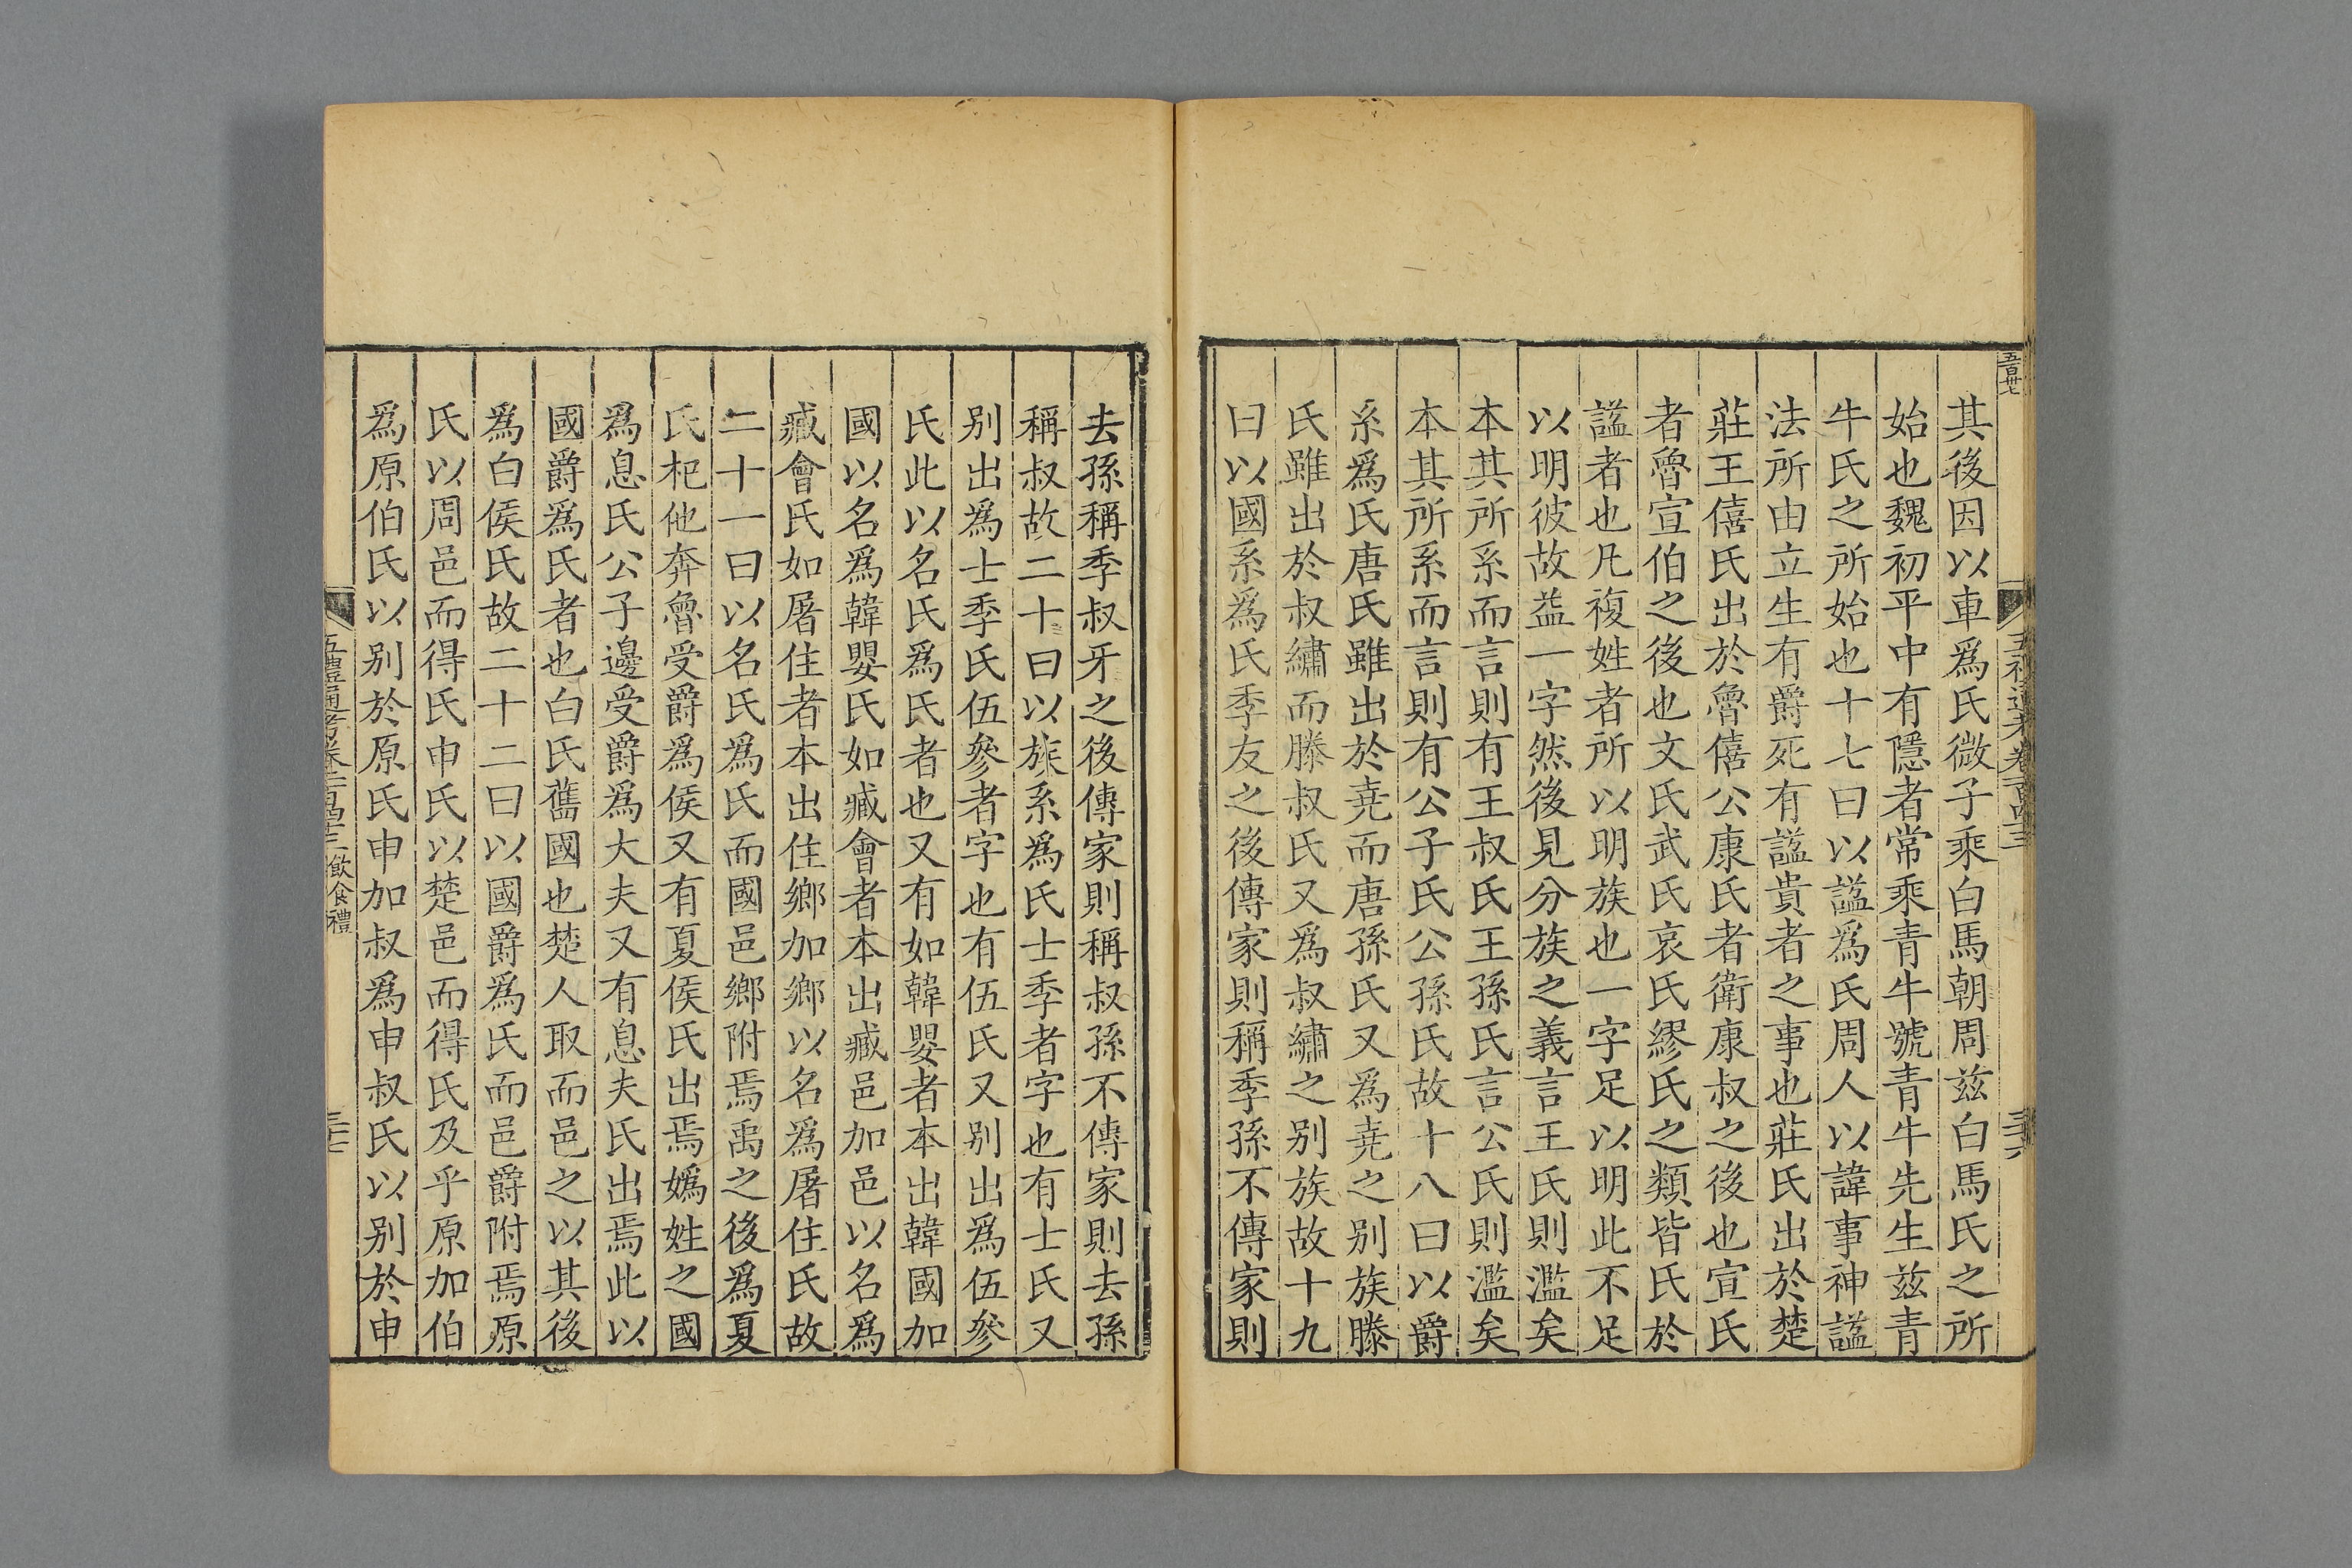 其後因以車爲氏微子乘白馬朝周茲白馬氏之所
始也魏初平中有隱者常乘青牛號青牛先生茲青
牛氏之所始也十七曰以諡爲氏周人以諱事神諡
法所由立生有爵死有諡貴者之事也莊氏出於楚
莊王僖氏出於魯僖公康氏者衛康叔之後也宣氏
者魯宣伯之後也文氏武氏哀氏繆氏之類皆氏於
諡者也凡複姓者所以明族也一字足以明此不足
以明彼故益一字然後見分族之義言王氏則濫矣
本其所系而言則有王叔氏王孫氏言公氏則濫矣
本其所系而言則有公子氏公孫氏故十八曰以爵
系爲氏唐氏雖出於堯而唐孫氏又爲堯之別族滕
氏雖出於叔繡而滕叔氏又爲叔繡之別族故十九
曰以國系爲氏季友之後傳家則稱季孫不傳家則
去孫稱季叔牙之後傳家則稱叔孫不傳家則去孫
稱叔故二十曰以族系爲氏士季者字也有士氏又
別出爲士季氏伍參者字也有伍氏又別出爲伍參
氏此以名氏爲氏者也又有如韓嬰者本出韓國加
國以名爲韓嬰氏如臧會者本出臧邑加邑以名爲
臧會氏如屠住者本出住鄉加鄉以名爲屠住氏故
二十一曰以名氏爲氏而國邑鄉附焉禹之後爲夏
氏杞他奔魯受爵爲侯又有夏侯氏出焉嬀姓之國
爲息氏公子邊受爵爲大夫又有息夫氏出焉此以
國爵爲氏者也白氏舊國也楚人取而邑之以其後
爲白侯氏故二十二曰以國爵爲氏而邑爵附焉原
氏以周邑而得氏申氏以楚邑而得氏及乎原加伯
爲原伯氏以別於原氏申加叔爲申叔氏以別於申
五禮通考卷二百四十三 飲食禮